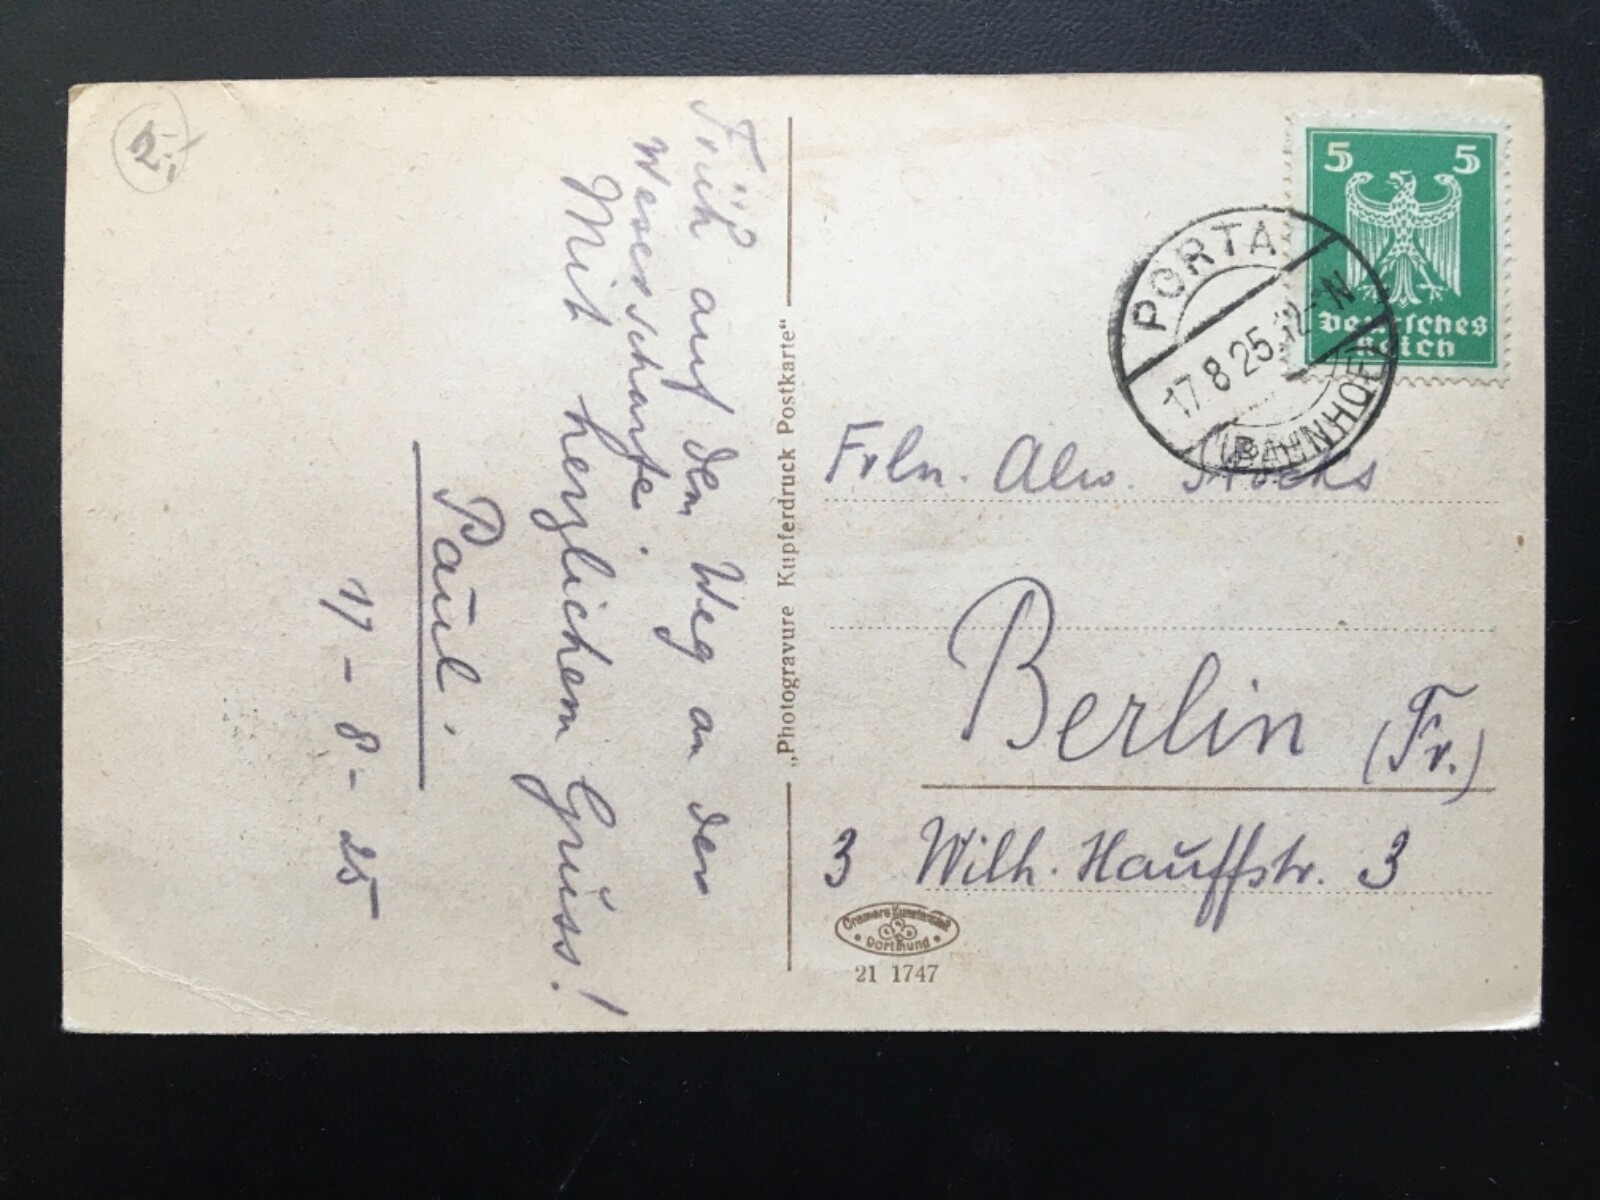 2.-
Früh auf dem Weg an der
Weserscharte.
Mit herzlichem Gruss!
Paul.
17-8-25
„Photogravure Kupferdruck Postkarte“
5 5
Deutsches
Reich
PORTA
17.8.25 12-N
(BAHNHOF)
Frln. Alw. Stocks
Berlin (Fr.)
3 Wilh. Hauffstr. 3
Cramers Kunstanstalt
Dortmund
21 1747